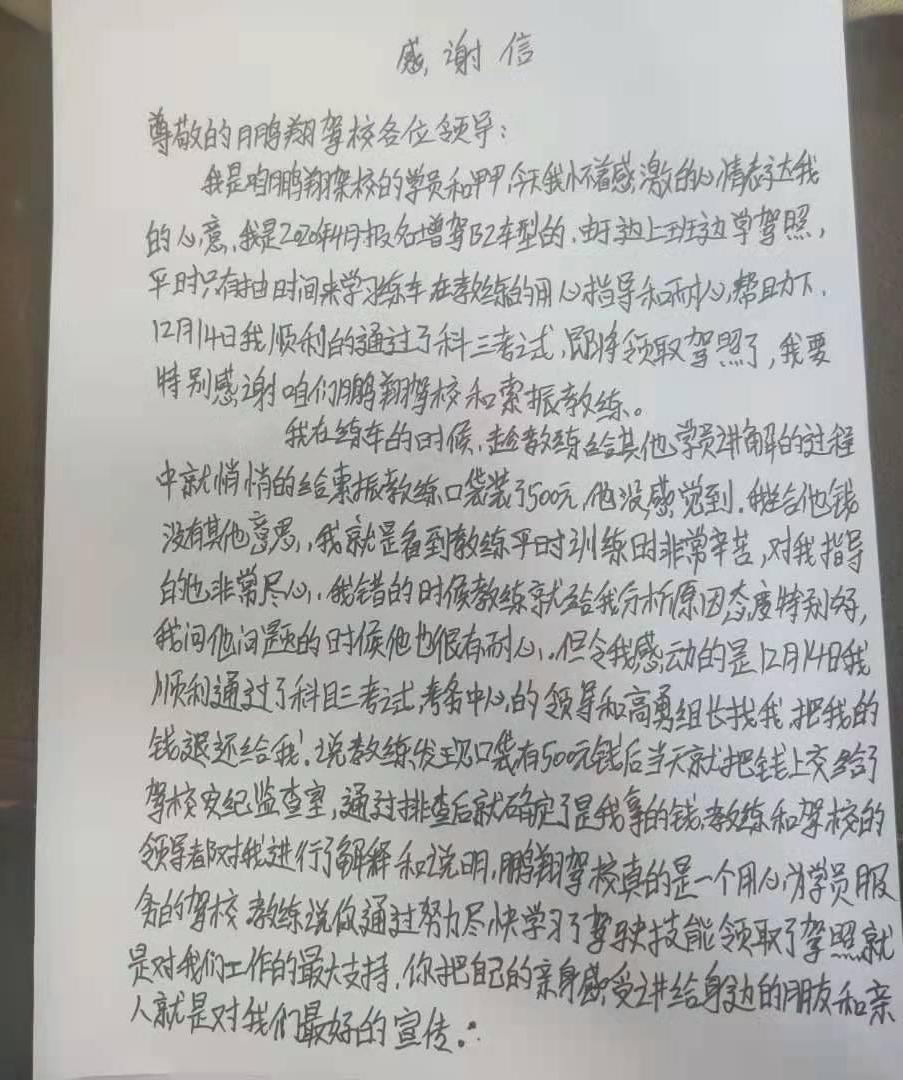 感谢信
尊敬的鹏翔驾校各位领导：
我是咱鹏翔驾校的学员和甲甲,今天我怀着感激的心情表达我
的心意,我是2020年4月报名增驾B2车型的.由于边上班边学驾照,
平时只有抽时间来学习练车在教练的用心指导和耐心帮助下.
12月14日我顺利的通过了科三考试,即将领取驾照了,我要
特别感谢咱们鹏翔驾校和索振教练。
我在练车的时候,趁教练给其他学员讲解的过程
中就悄悄的给索振教练口袋装了500元,他没感觉到.我给他钱
没有其他意思,我就是看到教练平时训练时非常辛苦,对我指导
的也非常尽心.我错的时候教练就给我分析原因态度特别好,
我问他问题的时候他也很有耐心.但令我感动的是12月14日我
顺利通过了科目三考试,考务中心的领导和高勇组长找我,把我的
钱退还给我.说教练发现口袋有500元钱后当天就把钱上交给了
驾校安纪监查室,通过排查后就确定了是我拿的钱,教练和驾校的
领导都对我进行了解释和说明,鹏翔驾校真的是一个用心为学员服
务的驾校 教练说你通过努力尽快学习了驾驶技能领取了驾照就
是对我们工作的最大支持.你把自己的亲身感受讲给身边的朋友和亲
人就是对我们最好的宣传.